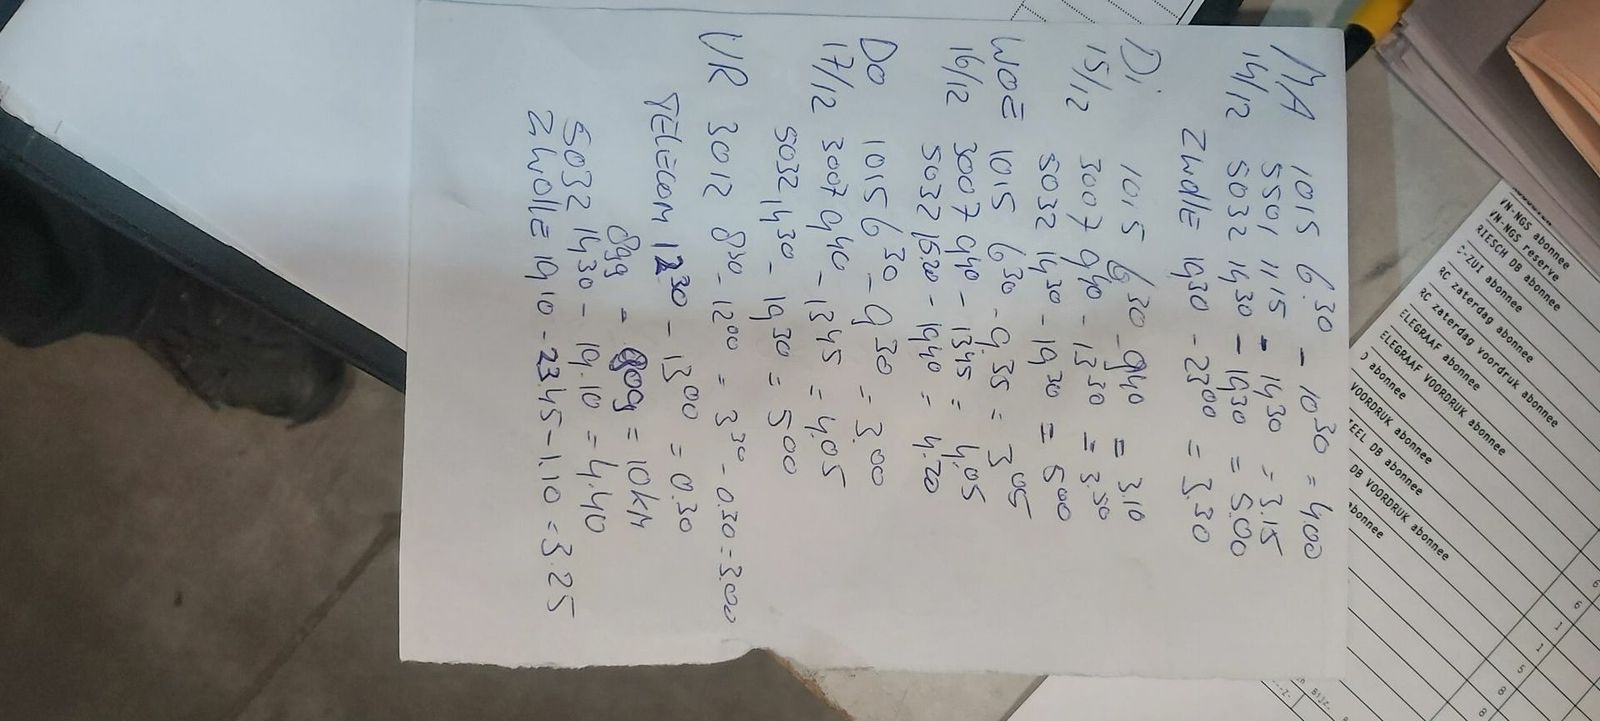 MA 1015 6.30 - 10 30 = 400
5501 11.15 - 14 30 = 3.15
14/12 5032 14,30 - 19,30 = 5.00
ZWOLLE 19,30 - 23 00 = 3.30
Di 1015 6 30 - 940 = 3.10
15/12 3007 940 - 13 30 = 3.50
5032 14,30 - 19,30 = 5 00
WOE 1015 6 30 - 9.35 = 3 05
16/12 3007 940 - 1345 = 4.05
5032 15.20 - 19,40 = 4.20
DO 1015 6 30 - 9 30 = 3.00
17/12 3007 940 - 1345 = 4.05
5032 14,30 - 19,30 = 5 00
VR 3012 8 30 - 12 00 = 3 30 - 0.30 = 3.00
TELECOM 12 30 - 13 00 = 0.30
899 - 909 = 10 km
5032 14,30 - 19.10 = 4.40
ZWOLLE 19,10 - 2345 - 1.10 = 3.25
VN-NGS abonnee
VN-NGS reserve
RIESCH DB abonnee
C-ZUI abonnee
RC zaterdag abonnee
RC zaterdag voordruk abonnee
ELEGRAAF abonnee
ELEGRAAF VOORDRUK abonnee
abonnee
VOORDRUK abonnee
EEL DB abonnee
DB VOORDRUK abonnee
abonnee
6
6
1
1
5
8
8